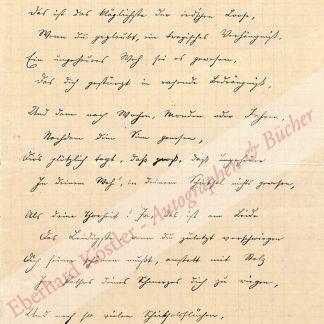 Das ist das kläglichste der ird'schen Loose,
Wenn du geglaubt, ein tragisches Verhängniß,
Ein ungeheures Weh sei es gewesen,
Das dich gestürzt in rasende Bedrängniß,
Und dann nach Wochen, Monden oder Jahren,
Nachdem dein Sinn genesen,
Dir plötzlich tagt, daß groß, daß
In deinem Weh', in deinem Schicksal nichts gewesen,
Als deine Thorheit! Ja, das ist am Leide
Das Leidigste, wenn du zuletzt verschwiegen
Dich seiner schämen mußt, anstatt mit Stolz
Im deines Schmerzes dich zu wiegen,
Und nach so vielen Schicksalsflüchen,
Eberhard Köstler - Autographen & Bücher